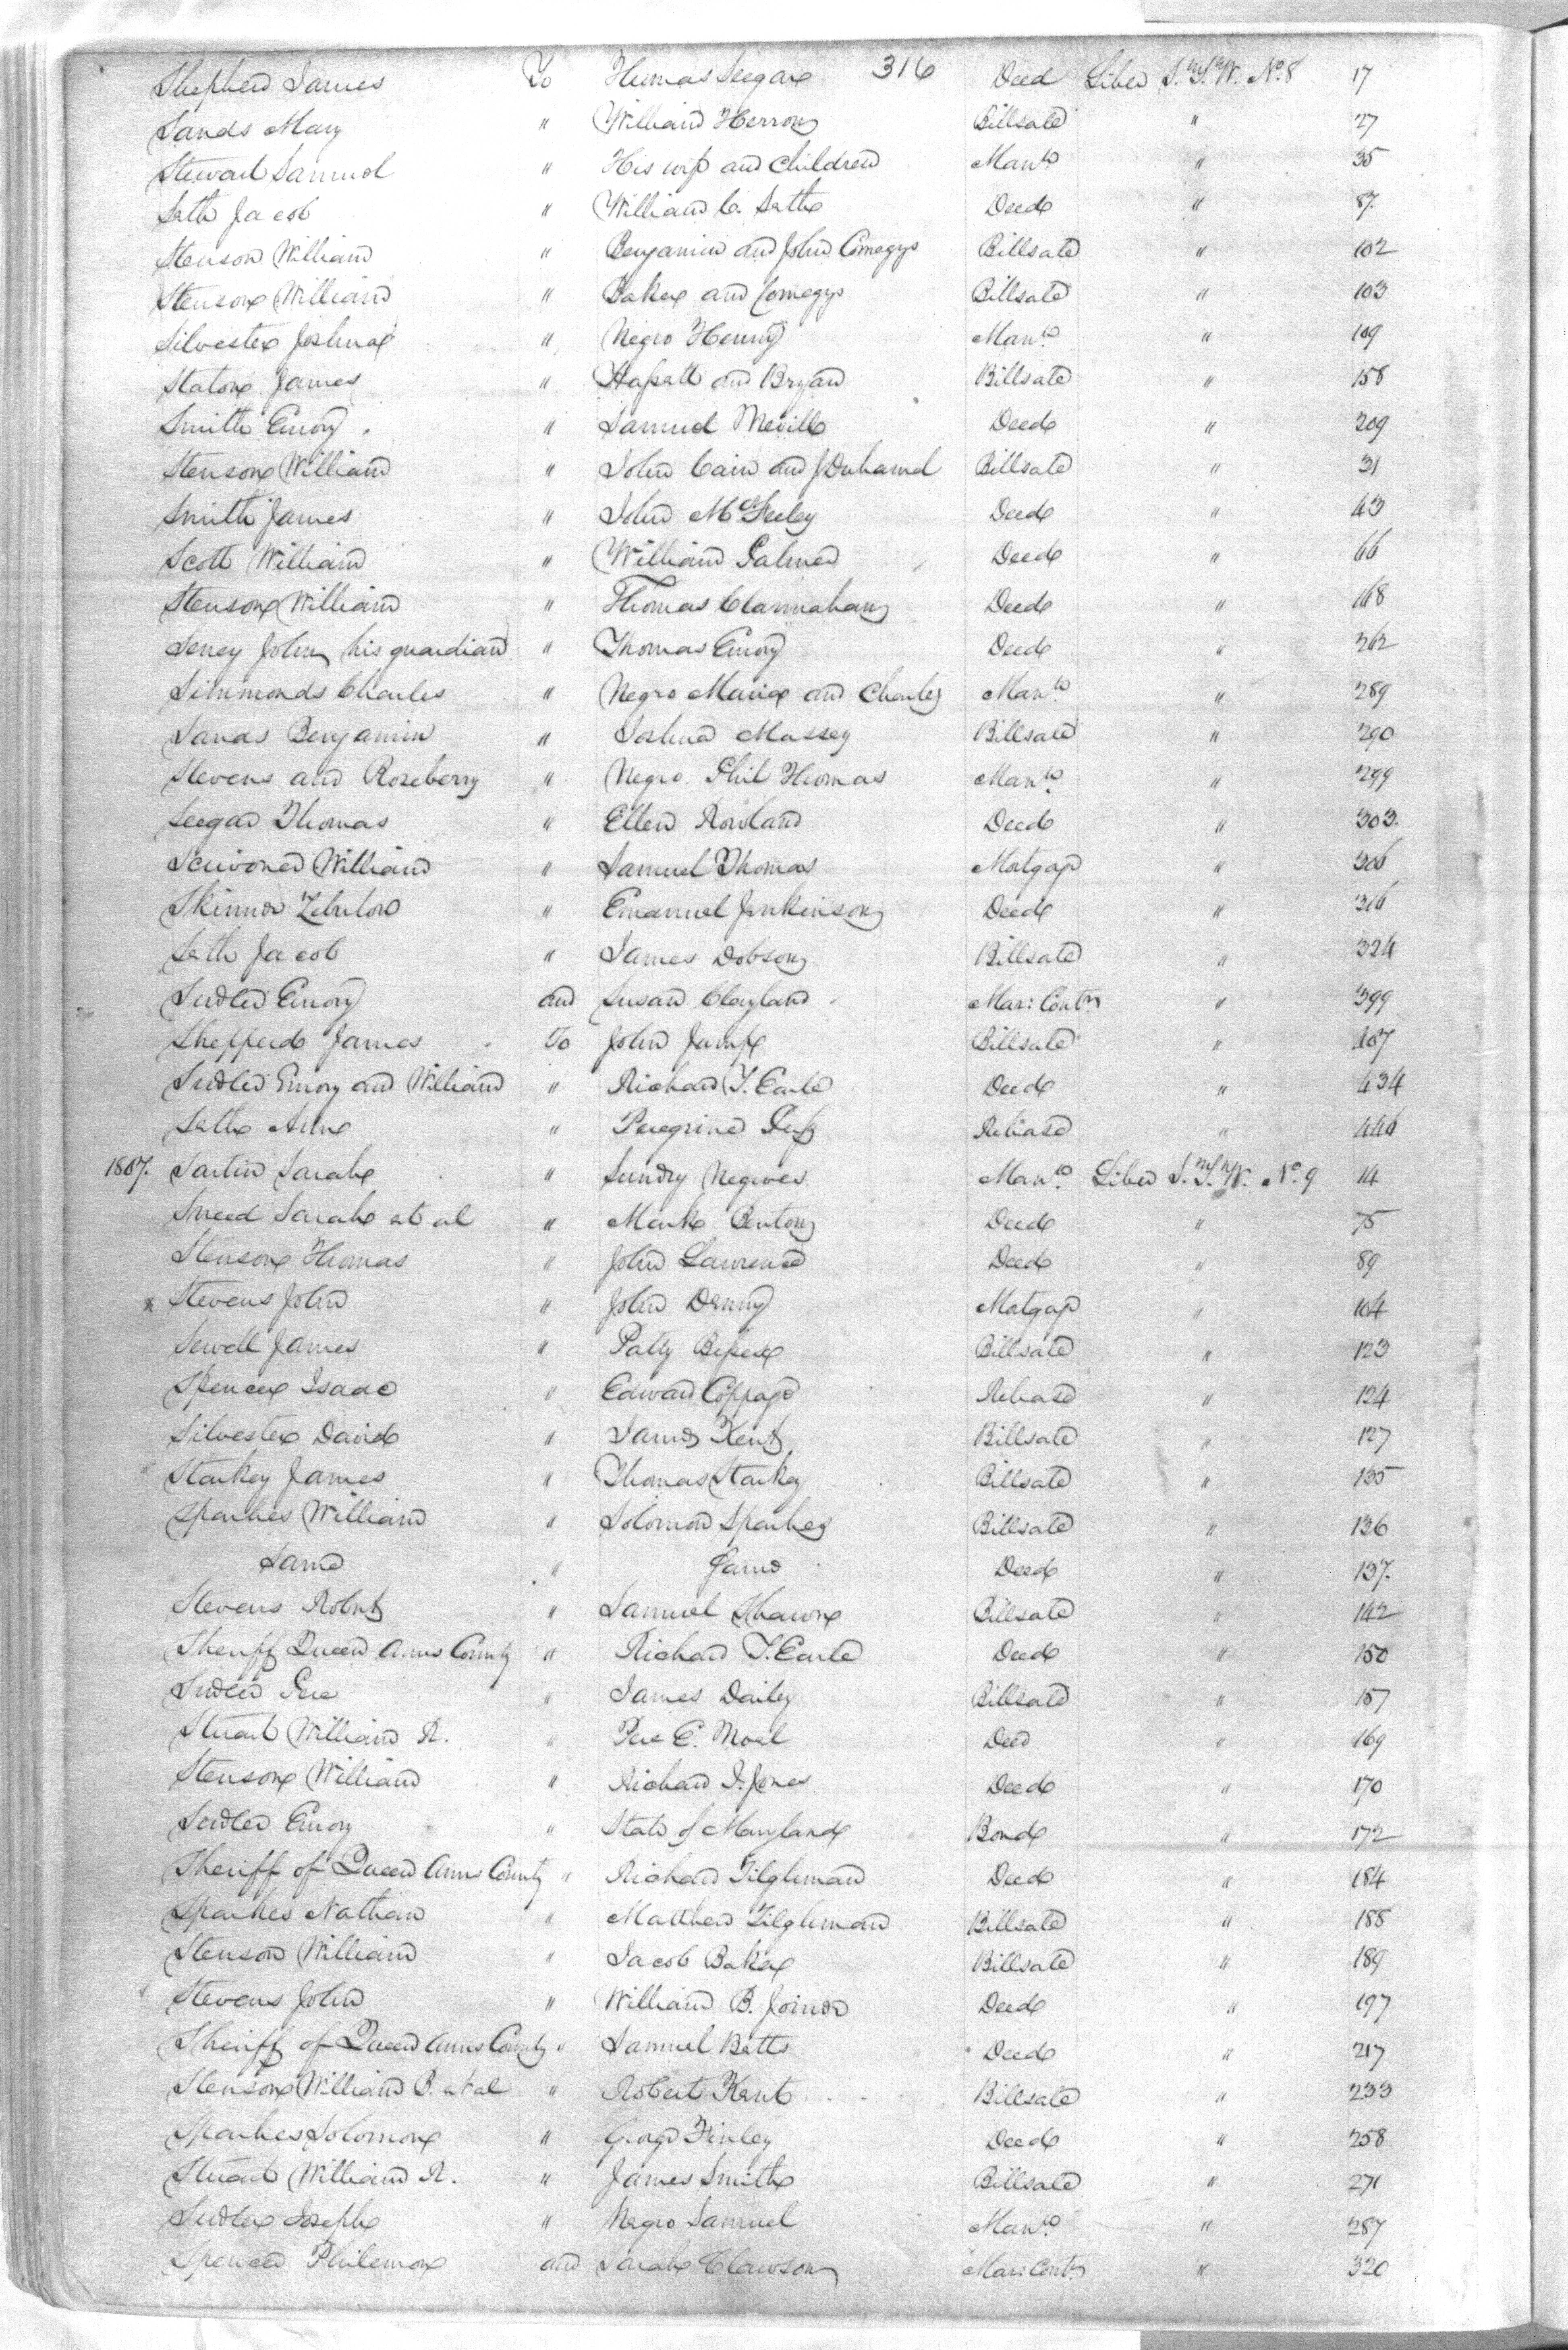 316
Shepherd James To Thomas Seegar Deed Liber S.T.W. No. 8 17
Sands Mary " William Herron Billsale " 27
Stewart Samuel " His wife and Children Man. " 35
Seth Jacob " William C. Seth Deed " 87
Stenson William " Benjamin and John Comegys Billsale " 102
Stenson William " Baker and Comegys Billsale " 103
Silvester Joshua " Negro Henny Man. " 109
Staton James " and Bryan Billsale " 158
Smith Emory " Samuel Nevill Deed " 209
Stenson William " John Cain and J Duhamel Billsale " 31
Smith James " John McFeeley Deed " 43
Scott William " William Palmer Deed " 66
Stenson William " Thomas Clannahan Deed " 168
Seney John, his guardian " Thomas Emory Deed " 262
Simmonds Charles " Negro Maria and Charles Man. " 289
Sands Benjamin " Joshua Massey Billsale " 290
Stevens and Roseberry " Negro Phil Thomas Man. " 299
Seegar Thomas " Ellen Rowland Deed " 303
Scrivoner William " Samuel Thomas Mortgage " 306
Skinner Zebulon " Emanuel Jenkinson Deed " 316
Seth Jacob " James Dobson Billsale " 324
Sudler Emory and Susan Clayland Mari: Contr " 399
Shepperd James To John Jump Billsale " 407
Sudler Emory and William " Richard T. Earle Deed " 434
Seth Anne " Peregrine Release " 446
1807. Sartin Sarah " Sundry Negroes Man. Liber S.T.W. No. 9 14
Sneed Sarah et al " Mark Benton Deed " 75
Stenson Thomas " John Lawrence Deed " 89
x Stevens John " John Denny Mortgage " 104
Sewell James " Patty Billsale " 123
Spencer Isaac " Edward Coppage Release " 124
Silvester David " James Kent Billsale " 127
Starkey James " Thomas Starkey Billsale " 135
Sparkes William " Solomon Sparkes Billsale " 136
Same " Same Deed " 137
Stevens Robert " Samuel Thawn Billsale " 142
Sheriff Queen Anns County " Richard T. Earle Deed " 150
Sudler Pere " James Dailey Billsale " 157
Stuart William R. " Pere E. Noel Deed " 169
Stenson William " Richard I. Jones Deed " 170
Sudler Emory " State of Maryland Bond " 172
Sheriff of Queen Anns County " Richard Tilghman Deed " 184
Sparkes Nathan " Matthew Tilghman Billsale " 188
Stenson William " Jacob Baker Billsale " 189
Stevens John " William B. Joiner Deed " 197
Sheriff of Queen Anns County " Samuel Betts Deed " 217
Stenson William B. et al " Robert Kent Billsale " 233
Sparkes Solomon " George Finley Deed " 258
Stuart William R. " James Smith Billsale " 271
Sudler Joseph " Negro Samuel Man. " 287
Spencer Philemon and Sarah Clawson Mari: Contr " 320